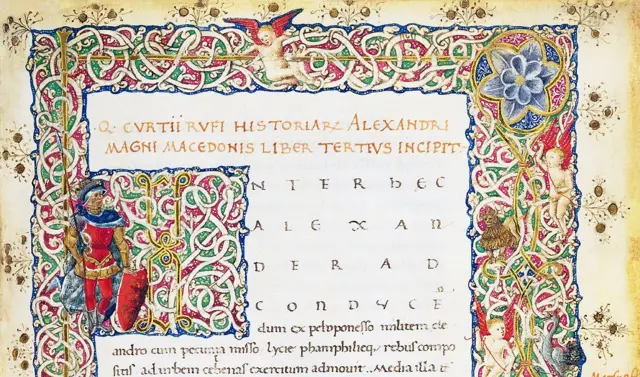 Q. CVRTII RVFI HISTORIAR ALEXANDRI
MAGNI MACEDONIS LIBER TERTIVS INCIPIT
INTER HEC
ALEXAN
DER AD
CONDVCE
dum ex peloponesso militem cle
andro cum pecunia misso: lycie phamphilieq; rebus compo
sitis ad urbem exercitum admouit. Media illa